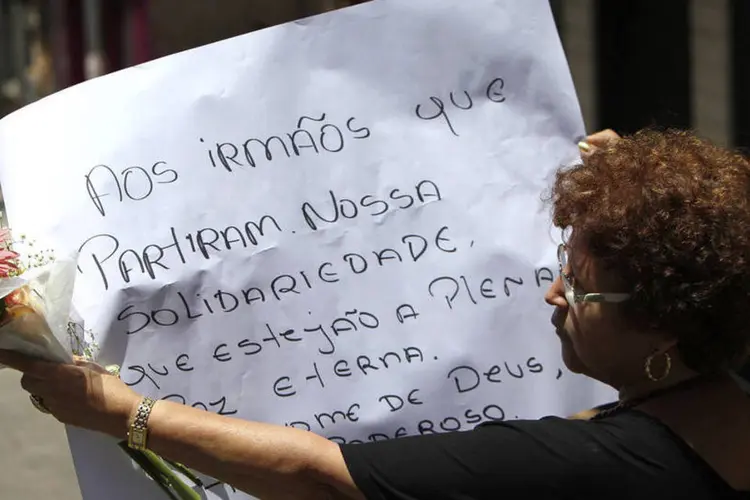 AOS IRMÃOS QUE
PARTIRAM. NOSSA
SOLIDARIEDADE,
QUE ESTEJÃO A PLENA
PAZ ETERNA.
NOME DE DEUS,
PODEROSO.